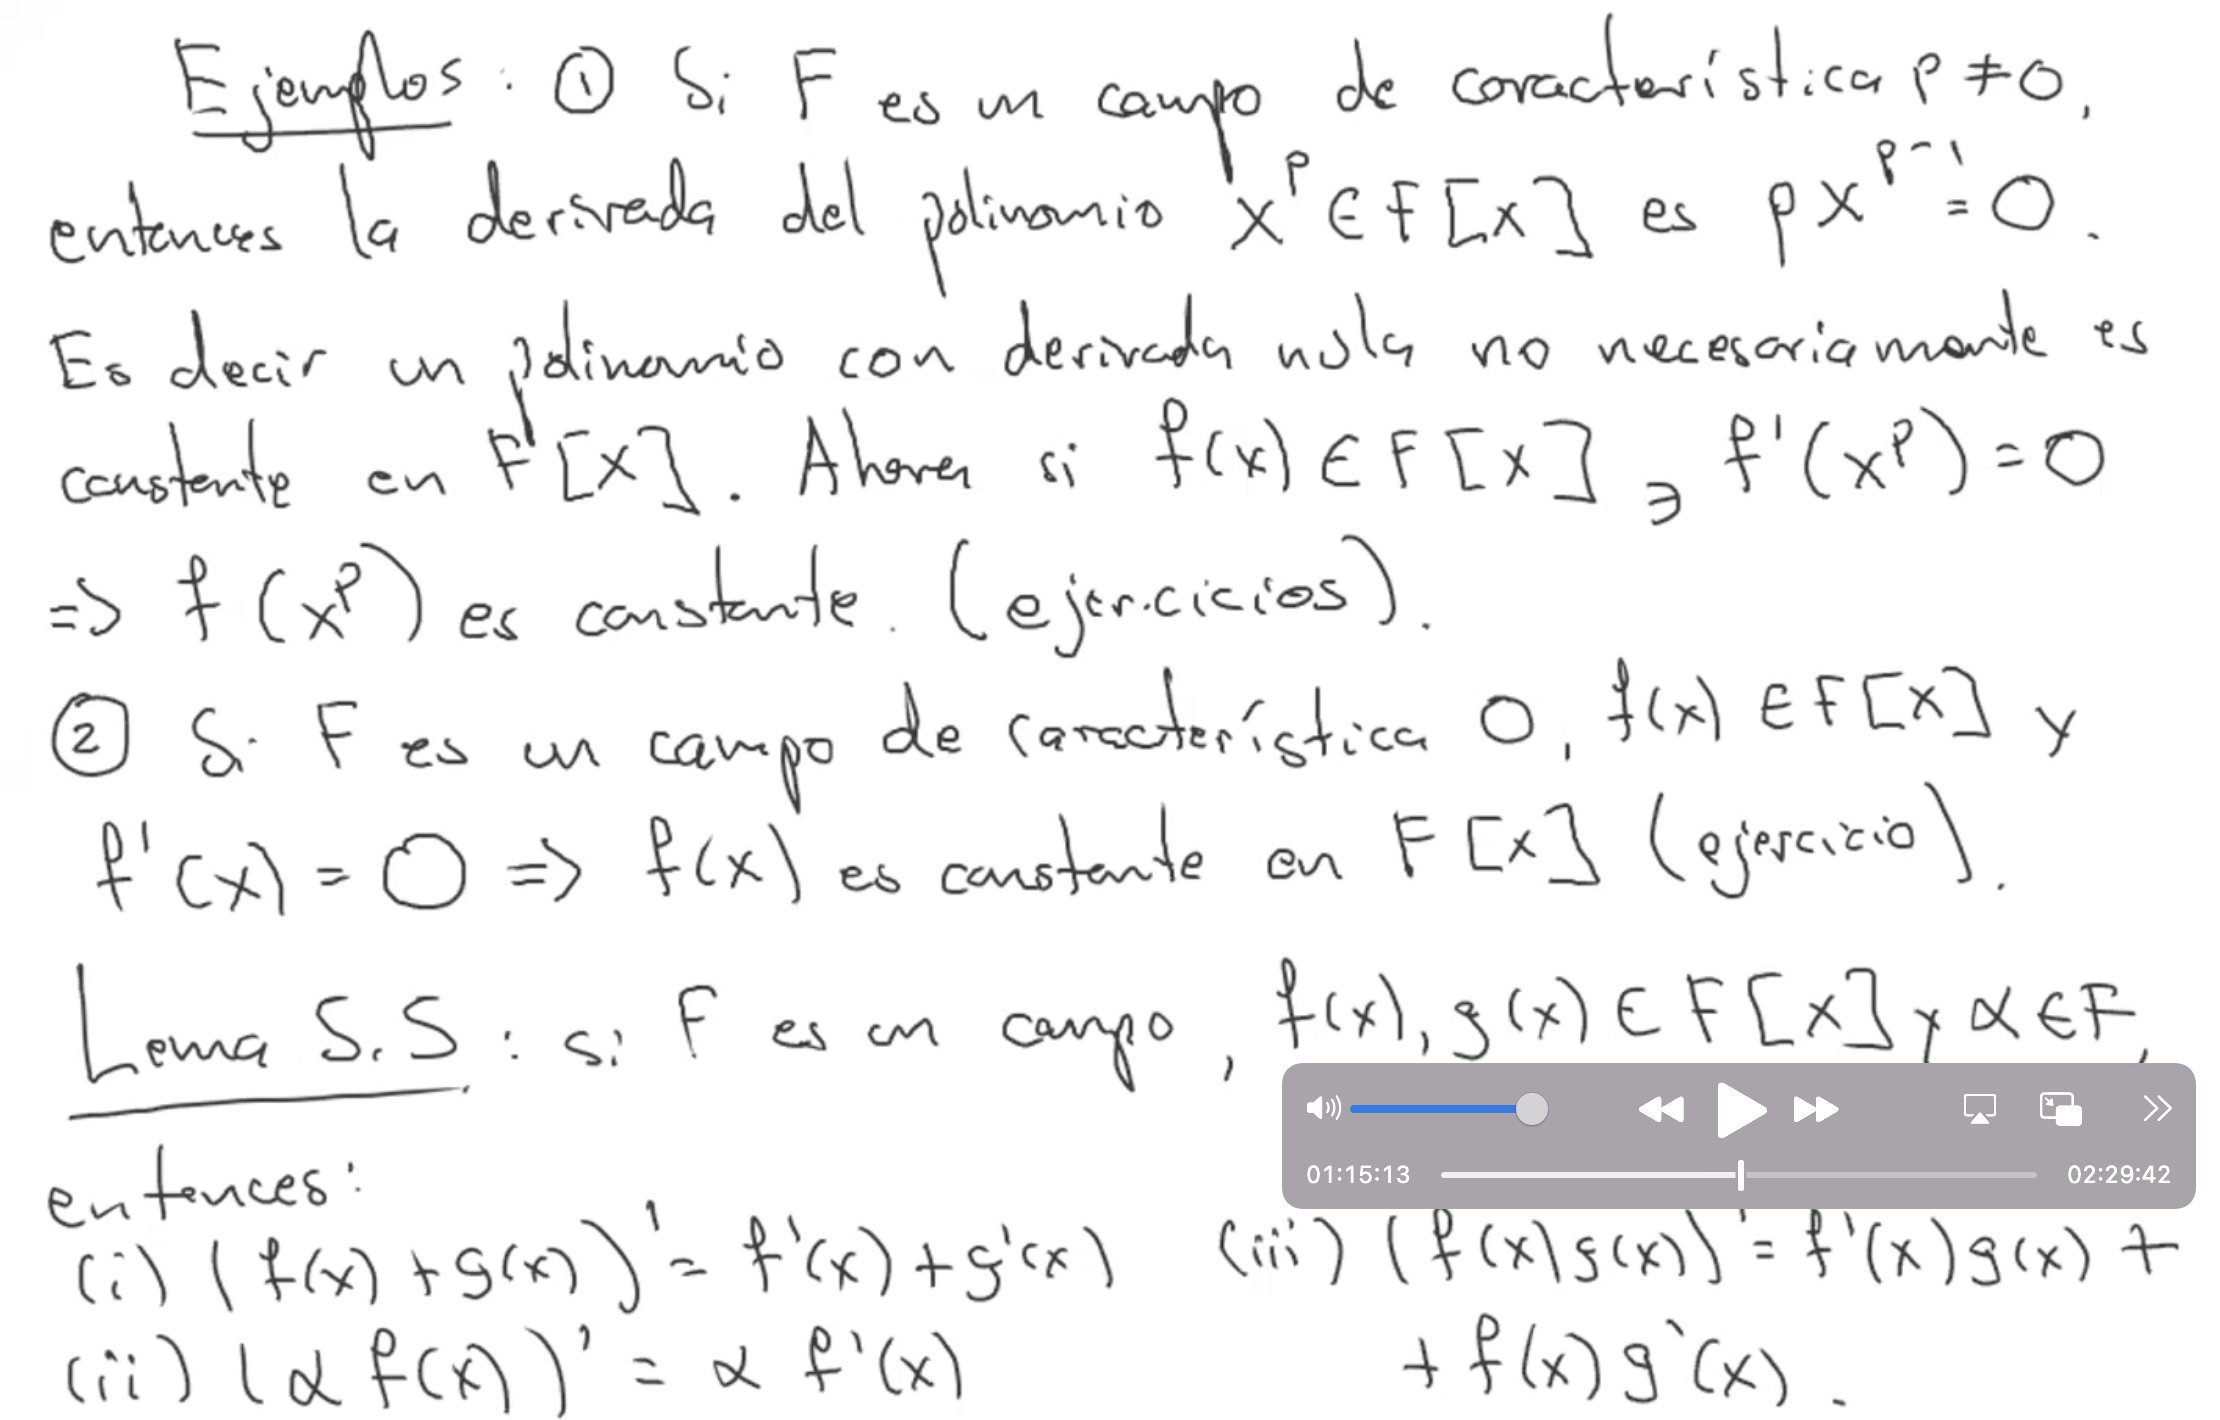 Ejemplos: ① Si F es un campo de característica p ≠ 0,
entonces la derivada del polinomio x^p ∈ F[x] es p x^{p-1} = 0.
Es decir un polinomio con derivada nula no necesariamente es
constante en F[x]. Ahora si f(x) ∈ F[x] ∋ f'(x^p) = 0
=> f(x^p) es constante. (ejercicios).
② Si F es un campo de característica 0, f(x) ∈ F[x] y
f'(x) = 0 => f(x) es constante en F[x] (ejercicio).
Lema 5.5: si F es un campo, f(x), g(x) ∈ F[x] y α ∈ F,
01:15:13 02:29:42
entonces:
(i) (f(x) + g(x))' = f'(x) + g'(x)
(ii) (α f(x))' = α f'(x)
(iii) (f(x) g(x))' = f'(x) g(x) +
+ f(x) g'(x).